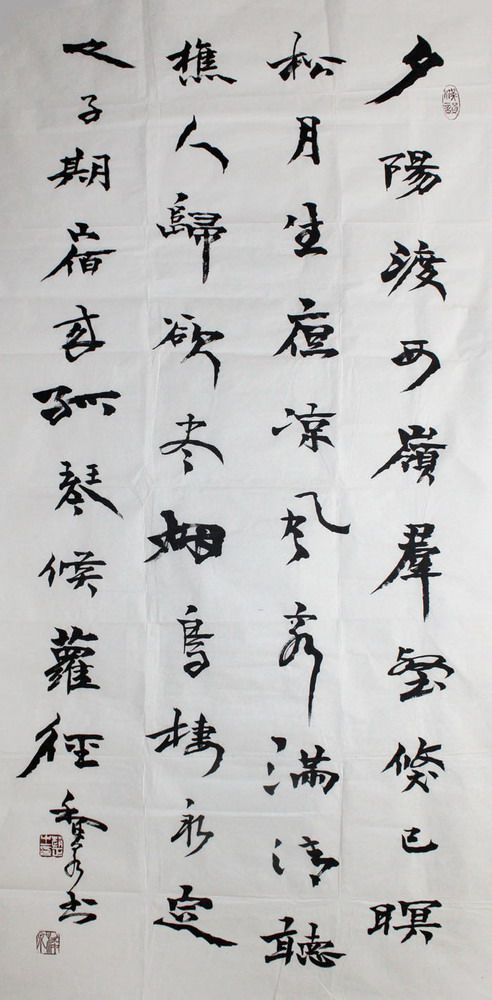 夕陽渡西嶺羣壑倏已暝
松月生夜凉風泉满清聽
樵人歸欲尽烟鳥棲初定
之子期宿来孤琴候蘿徑 书